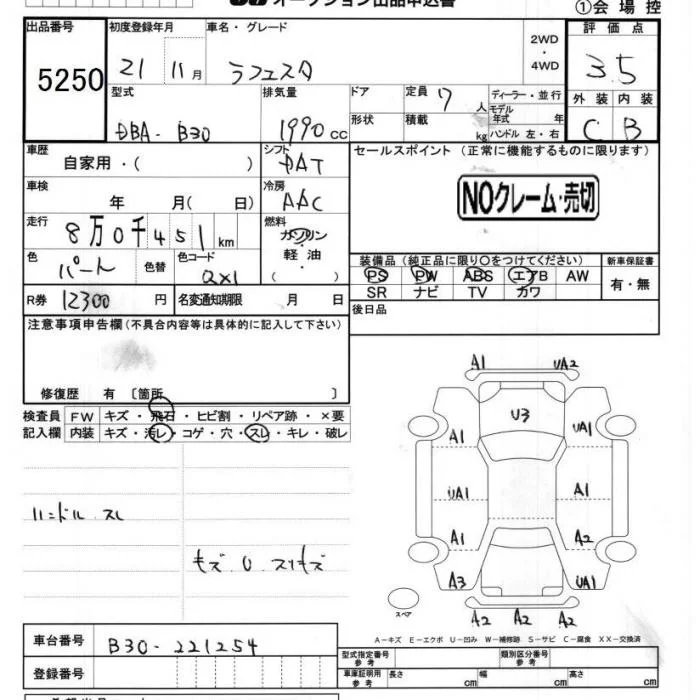 オークション出品申込書
①会場控
出品番号 初度登録年月 車名・グレード 2WD・4WD 評価点
5250 21 11月 ラフェスタ 3.5
型式 排気量 ドア 定員 7人 ディーラー・並行 外装 内装
形状 積載 kg モデル年式 年 ハンドル 左・右
DBA-B30 1990cc C B
車歴 シフト セールスポイント (正常に機能するものに限ります)
自家用・( ) DAT
車検 冷房 NOクレーム・売切
年 月( 日) AAC
走行 8万0千451km 燃料
ガソリン・軽油・( )
色 パール 色替 色コード QX1
装備品 (純正品に限り○をつけてください) 新車保証書
PS PW ABS エアB AW 有・無
SR ナビ TV カワ
R券 12300円 名変通知期限 月 日 後日品
注意事項申告欄 (不具合内容等は具体的に記入して下さい)
修復歴 有 〔箇所 〕
検査員 FW キズ・飛石・ヒビ割・リペア跡・×要
記入欄 内装 キズ・汚レ・コゲ・穴・スレ・キレ・破レ
ハンドル スレ
キズ U スリキズ
A1 UA2
U3
A1 UA1
UA1 A1
A1 A2
A3 UA1
A2 A2 A2
スペア
A―キズ E―エクボ U―凹み W―補修跡 S―サビ C―腐食 XX―交換済
車台番号 B30-221254
登録番号
型式指定番号 参考 類別区分番号 参考
車庫証明用 参考 長さ cm 幅 cm 高さ cm